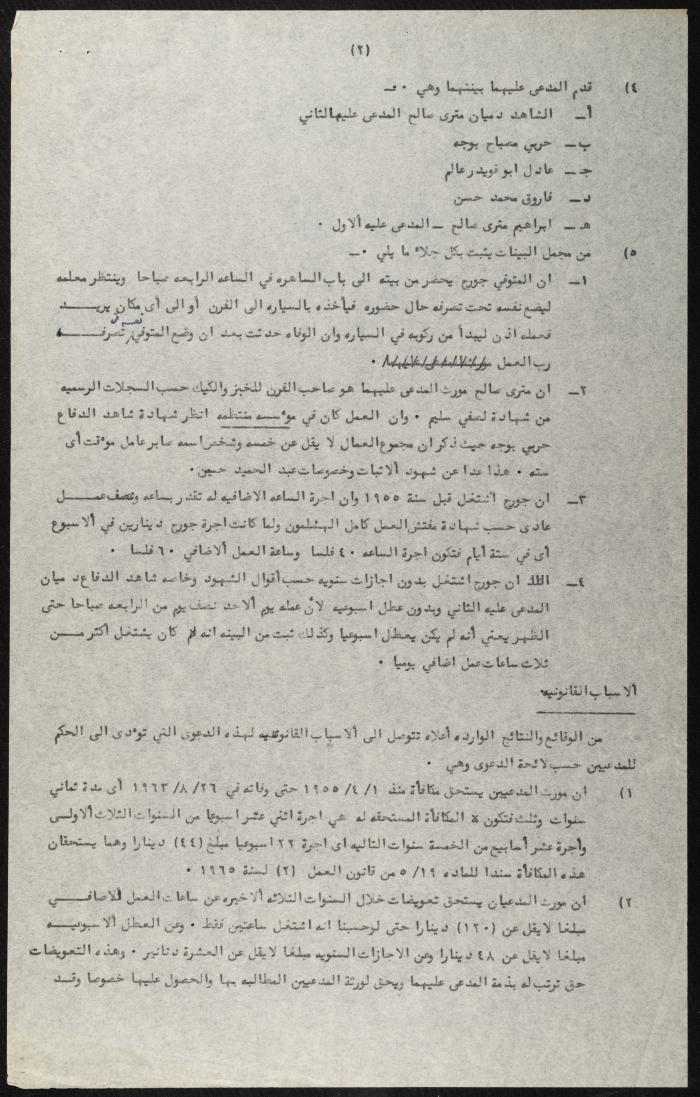 (٢)
٤) قدم المدعى عليهما بينتهما وهي ٠ـ
أـ الشاهد دميان مترى صالح المدعى عليه الثاني
بـ حربي مصباح بوجه
جـ عادل ابو قويدر عالم
دـ فاروق محمد حسن
هـ ـ ابراهيم مترى صالح ـ المدعى عليه الاول ٠
٥) من مجمل البينات يثبت بكل جلاء ما يلي ٠ـ
١ـ ان المتوفي جورج يحضر من بيته الى باب الساهره في الساعه الرابعه صباحا وينتظر معلمه
ليضع نفسه تحت تصرفه حال حضوره فيأخذه بالسياره الى الفرن أو الى أى مكان يريـــد
فعمله اذن ليبدأ من ركوبه في السياره وان الوفاه حدثت بعد ان وضع المتوفي نفسه تصرفــــه
رب العمل ٠
٢ـ ان مترى صالح مورث المدعى عليهما هو صاحب الفرن للخبز والكيك حسب السجلات الرسميه
من شهادة لصفي سليم ٠ وان العمل كان في مؤسسه منتظمه انظر شهادة شاهد الدفاع
حربي بوجه حيث ذكر ان مجموع العمال لا يقل عن خمسه وشخص اسمه صابر عامل مؤقت أى
سته ٠ هذا عدا عن شهود الاثبات وخصوصات عبد الحميد حسين٠
٣ـ ان جورج اشتغل قبل سنة ١٩٥٥ وان اجرة الساعه الاضافيه له تقدر بساعه ونصف عمـــل
عادى حسب شهادة مفتش العمل كامل الهشلمون ولما كانت اجرة جورج دينارين في الاسبوع
أى في ستة أيام فتكون اجرة الساعه ٤٠ فلسا وساعة العمل الاضافي ٦٠ فلسا ٠
٤ـ ان جورج اشتغل بدون اجازات سنويه حسب أقوال الشهود وخاصه شاهد الدفاع دميان
المدعى عليه الثاني وبدون عطل اسبوعيه لأن عمله يوم الاحد نصف يوم من الرابعه صباحا حتى
الظهر يعني أنه لم يكن يعطل اسبوعيا وكذلك ثبت من البينه انه كان يشتغل أكثر مـــن
ثلاث ساعات عمل اضافي يوميا ٠
الاسباب القانونيه٠
من الوقائع والنتائج الوارده أعلاه تتوصل الى الاسباب القانونيه لهذه الدعوى التي تؤدى الى الحكم
للمدعيين حسب لائحة الدعوى وهي ٠
١) ان مورث المدعيين يستحق مكافأة منذ ١/ ٤/ ١٩٥٥ حتى وفاته في ٢٦/ ٨/ ١٩٦٣ أى مدة ثماني
سنوات وثلث فتكون المكافأة المستحقه له هي اجرة اثني عشر اسبوعا من السنوات الثلاث الاولـى
وأجرة عشر أسابيع من الخمسة سنوات التاليه اى اجرة ٢٢ اسبوعيا مبلغ (٤٤) دينارا وهما يستحقان
هذه المكافأة سندا للماده ١٩/ ٥ من قانون العمل (٢) لسنة ١٩٦٥ ٠
٢) ان مورث المدعيان يستحق تعويضات خلال السنوات الثلاثه الاخيره عن ساعات العمل الاضافـــي
مبلغا لا يقل عن (١٢٠) دينارا حتى لوحسبنا انه اشتغل ساعتين فقط ٠ وعن العطل الاسبوعيــه
مبلغا لا يقل عن ٤٨ دينارا وعن الاجازات السنويه مبلغا لا يقل عن العشرة دنانير ٠ وهذه التعويضات
حق ترتب له بذمة المدعى عليهما ويحق لورثة المدعيين المطالبه بها والحصول عليها خصوصا وقــد